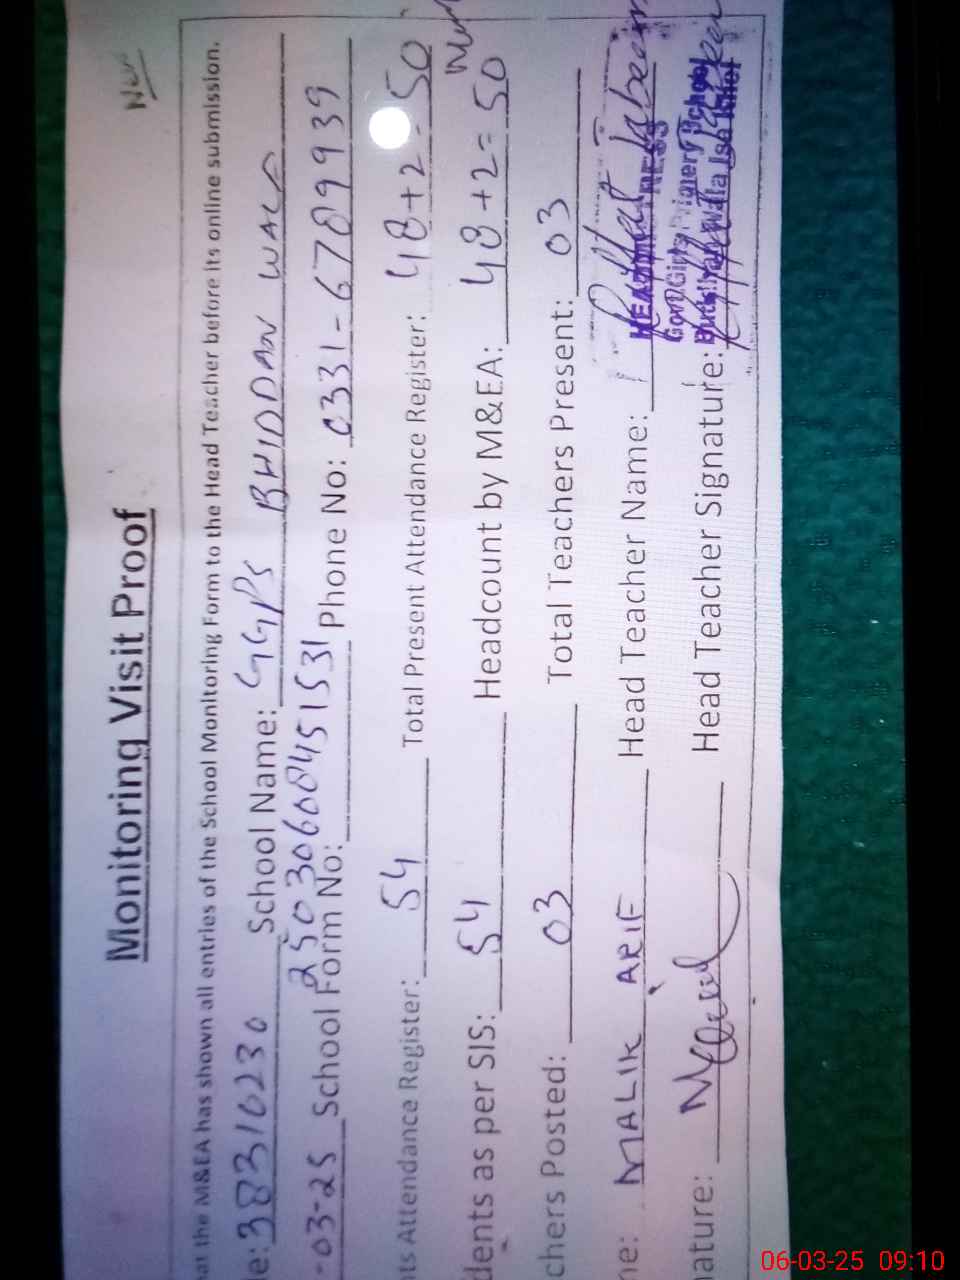 New
Monitoring Visit Proof
at the M&EA has shown all entries of the School Monitoring Form to the Head Teacher before its online submission.
le: 38310230 School Name: GGPS BHIDDAN WALI
-03-25 School Form No: 25030608451531 Phone No: 0331-6789939
nts Attendance Register: 54 Total Present Attendance Register: 48+2=50
dents as per SIS: 54 Headcount by M&EA: 48+2=50
chers Posted: 03 Total Teachers Present: 03
ne: MALIK ARIF Head Teacher Name: Riffat Jabeen
nature: Head Teacher Signature:
HEADMISTRESS
Govt. Girls Primary School
06-03-25 09:10